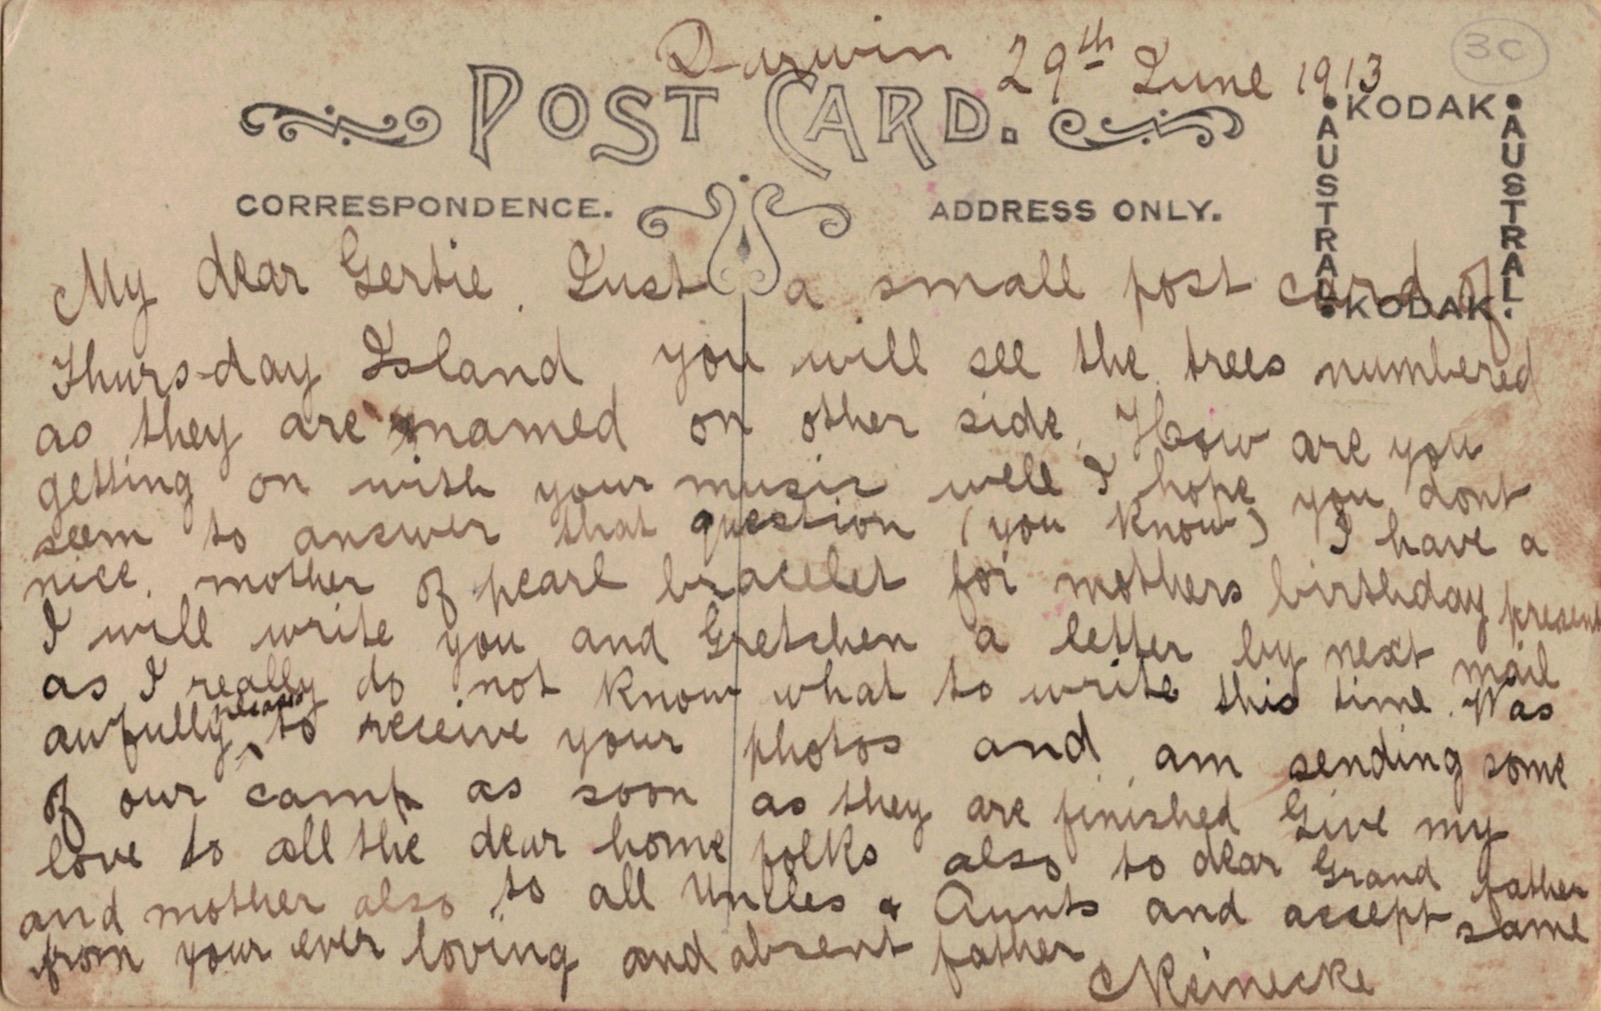 Darwin 29th June 1913
3C
POST CARD.
•KODAK•
AUSTRAL
AUSTRAL.
•KODAK.
CORRESPONDENCE.
ADDRESS ONLY.
My dear Gertie. Just a small post card of
Thurs-day Island you will see the trees numbered
as they are named on other side. How are you
getting on with your music well I hope you dont
seem to answer that question (you know) I have a
nice mother of pearl bracelet for mothers birthday present
I will write you and Gretchen a letter by next mail
as I really do not know what to write this time. Was
awfully pleased to receive your photos and am sending some
of our camp as soon as they are finished Give my
love to all the dear home folks also to dear Grand father
and mother also to all Uncles & Aunts and accept same
from your ever loving and absent father
C Reinecke